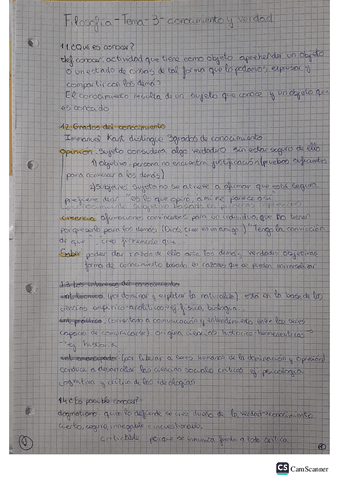 Filosofía - Tema - 3 - conocimiento y verdad
1.1 ¿Qué es conocer?
def conocer: actividad que tiene como objeto aprehender un objeto
o un estado de cosas de tal forma que lo podamos expresar y
compartir con los demás
El conocimiento resulta de un sujeto que conoce y un objeto que
es conocido
1.2 Grados del conocimiento
Immanuel Kant distingue 3 grados de conocimiento
Opinión: Sujeto considera algo verdadero sin estar seguro de ello
1) objetivo: persona no encuentra justificación (pruebas suficientes
para convencer a los demás)
2) subjetivo: Sujeto no se atreve a afirmar que está seguro
prefiere decir es lo que opino, a mi me parece
Creencia afirmaciones convincentes para un individuo que no tienen
por qué serlo para los demás
de que creo firmemente que
Saber poder dar razón de ello ante los demás, verdades objetivas
forma de conocimiento basada en razones que se pueden
1.3 Los intereses del conocimiento
int. técnico (por dominar y explotar la naturaleza) está en la base de las
ciencias empírico-analíticas ej física, biología
int. práctico (orientado a comunicación y entendimiento entre los seres
capaces de comunicarse) origina ciencias histórico hermenéuticas
ej historia
(por liberar a seres humanos de la dominación y opresión)
conduce a desarrollar las ciencias sociales críticas ej psicología
cognitiva y crítica de las ideologías
1.4 ¿Es posible conocer?
dogmatismo quien lo defiende se cree dueño de la verdad. conocimiento
cierto, seguro, innegable e incuestionable.
criticable porque se inmuniza frente a toda crítica
CS CamScanner